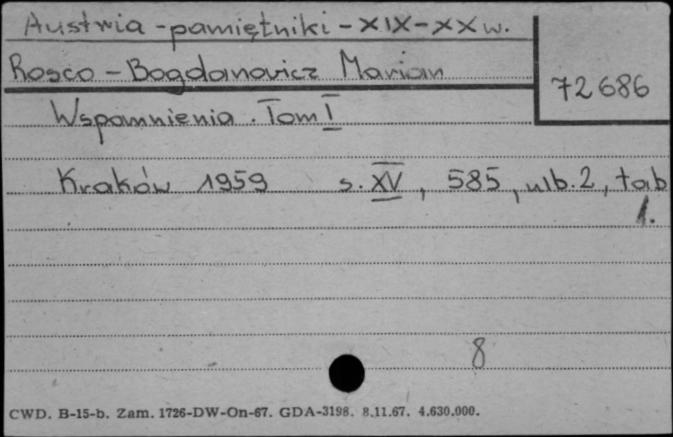 Austria - pamiętniki - XIX - XX w.
Rosco - Bogdanowicz Marian
72686
Wspomnienia. Tom I
Kraków 1959 s. XV, 585, nlb. 2, tab
1.
8
CWD. B-15-b. Zam. 1726-DW-On-67. GDA-3198. 8.11.67. 4.630.000.